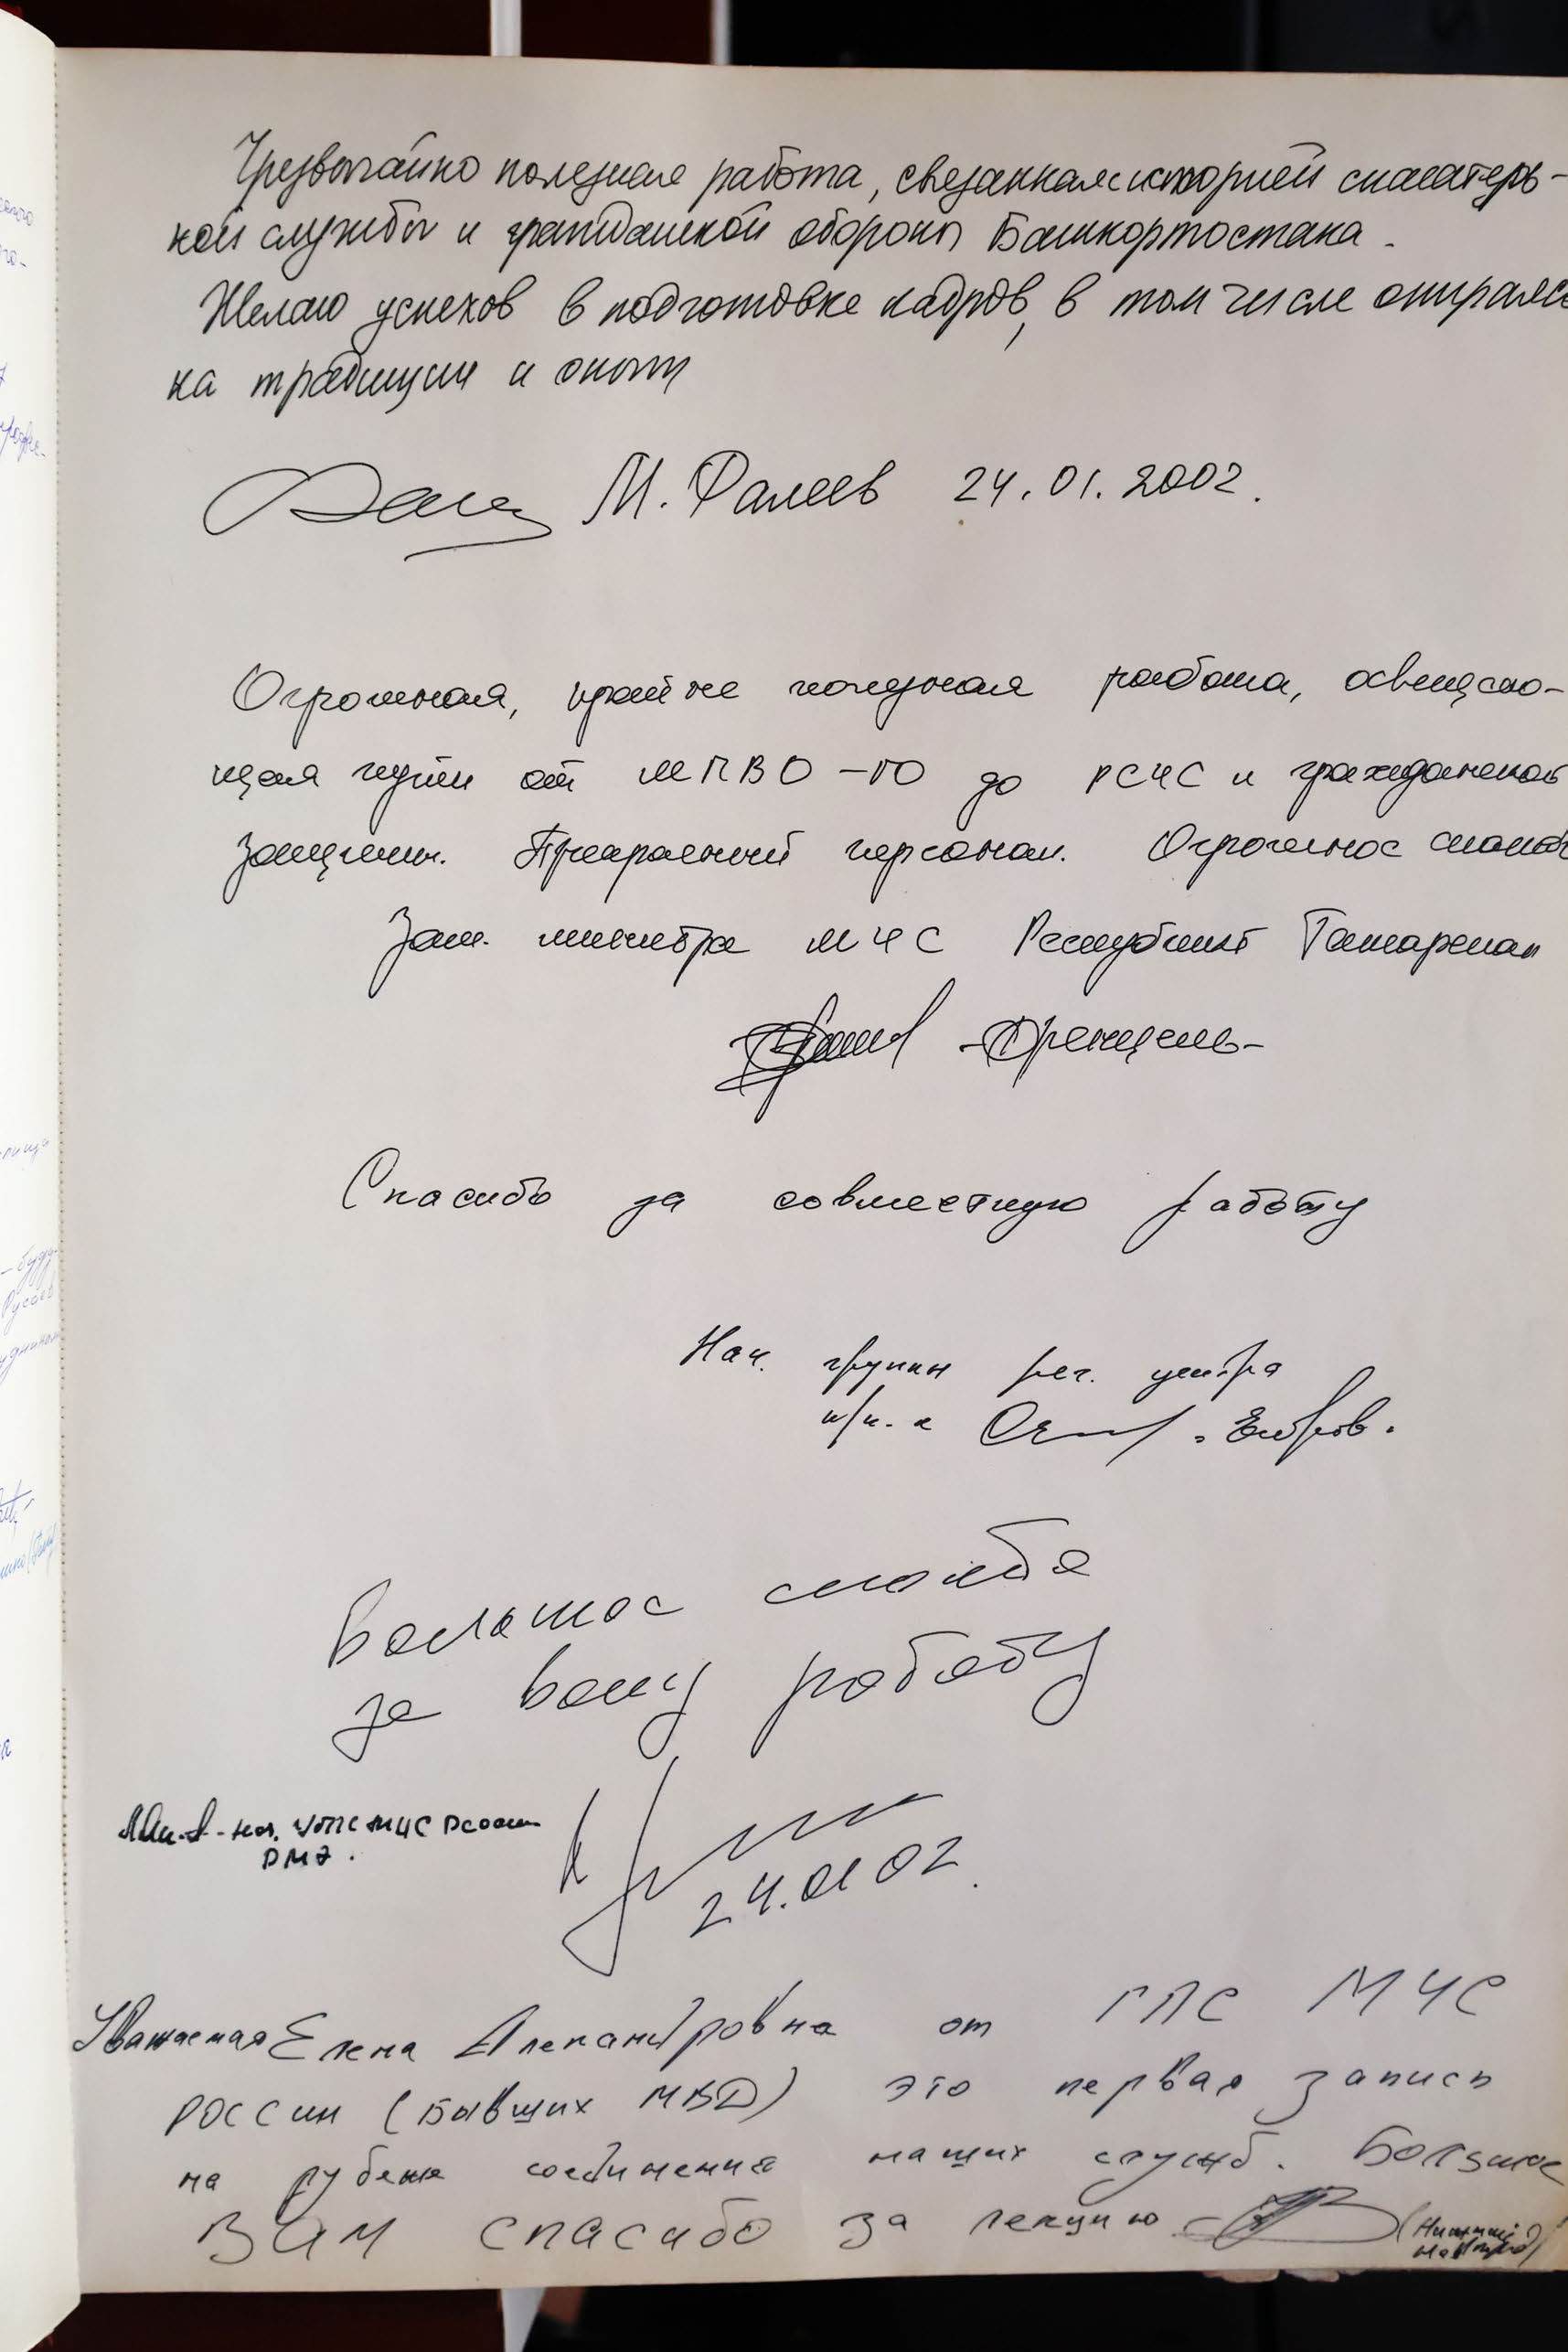 Чрезвычайно полезная работа, связанная с историей спасатель-
ной службы и гражданской обороны Башкортостана.
Желаю успехов в подготовке кадров, в том числе опираясь
на традиции и опыт
М. Фалеев 24.01.2002.
Огромная, крайне полезная работа, освещаю-
щая пути от МПВО-ГО до РСЧС и гражданской
защиты. Прекрасный персонал. Огромное спасибо
Зам. министра МЧС Республики Татарстан
-Френцель-
Спасибо за совместную работу
Нач. группы рег. центра
п/п-к
Большое спасибо
за вашу работу
24.01 02.
Уважаемая Елена Александровна от ГПС МЧС
РОССИИ (Бывших МВД) это первая запись
на рубеже соединения наших служб. Большое
ВАМ спасибо за лекцию (Нижний
Новгород)